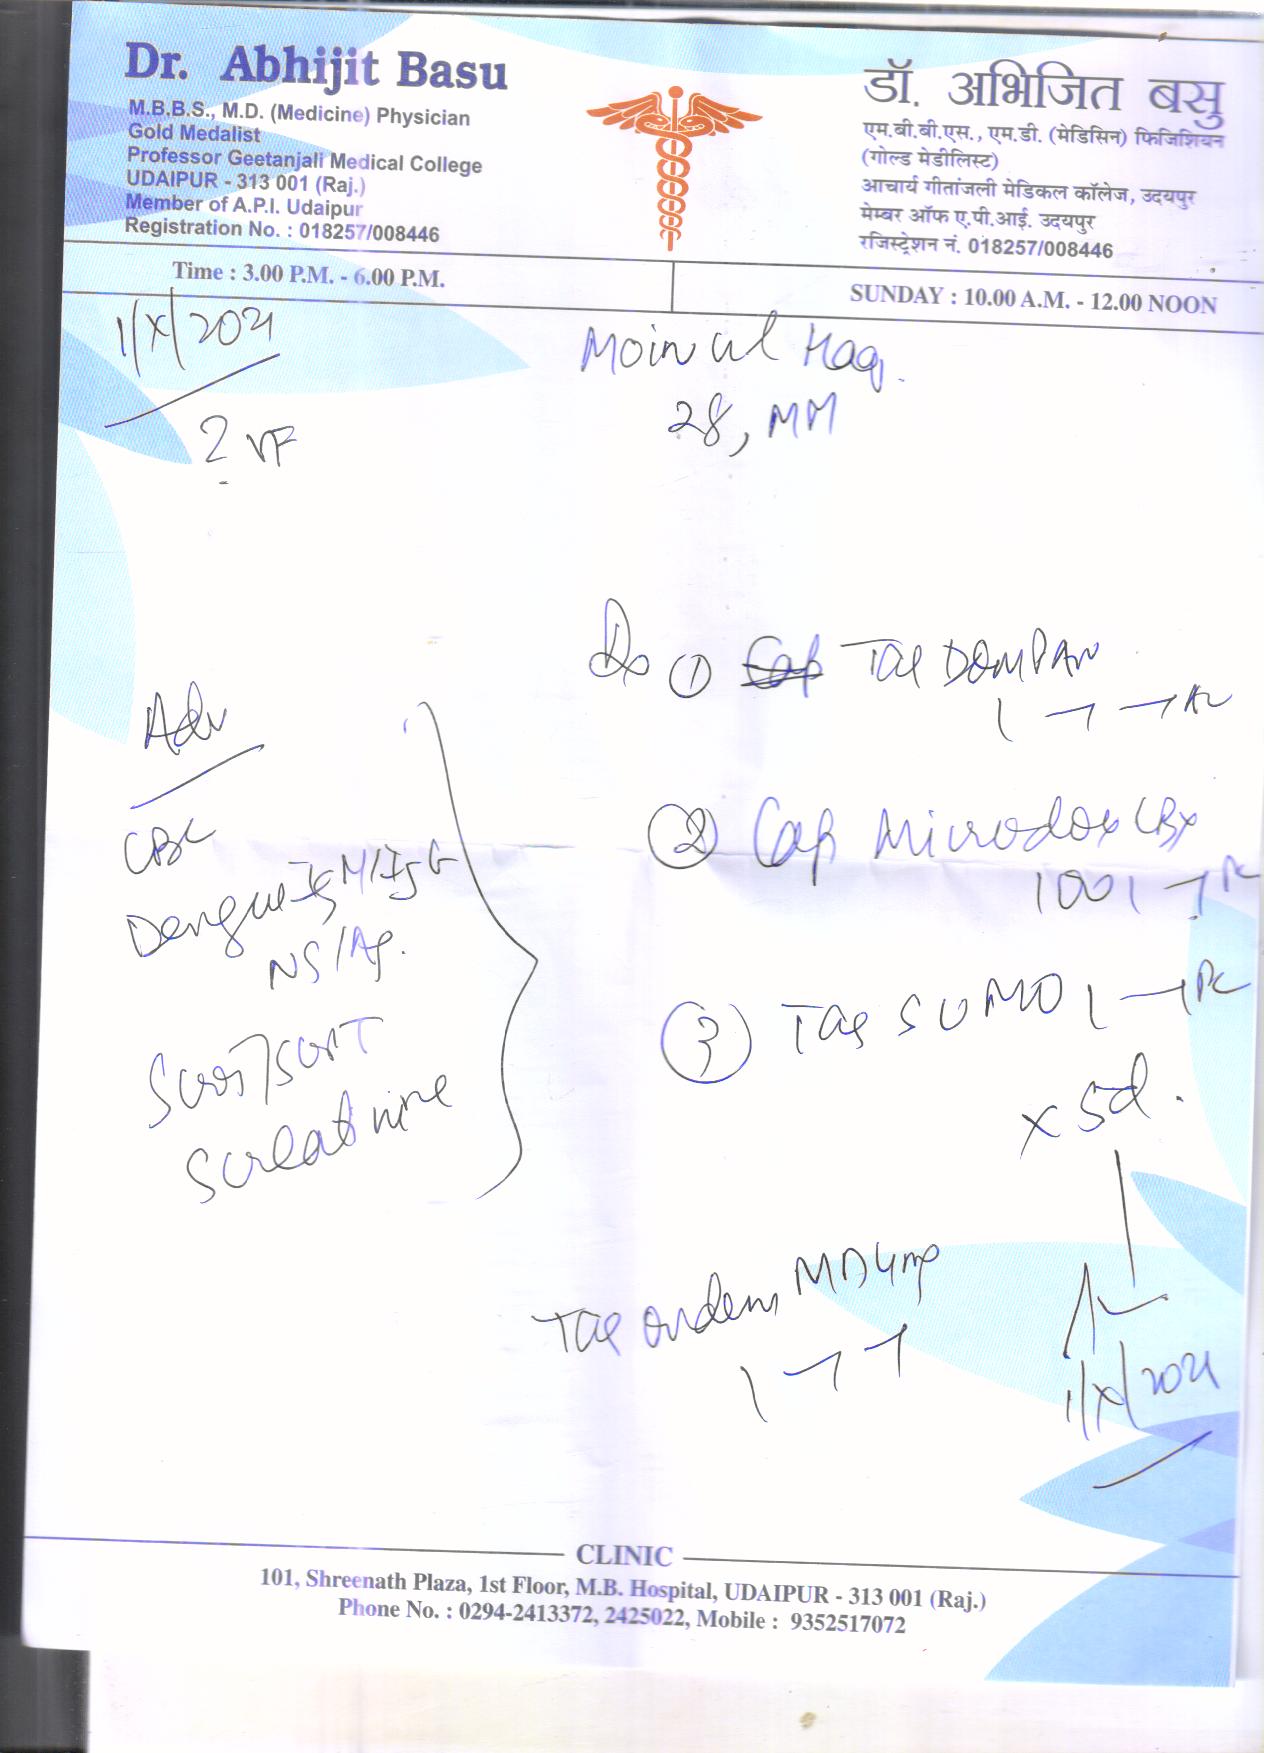 Dr. Abhijit Basu
M.B.B.S., M.D. (Medicine) Physician
Gold Medalist
Professor Geetanjali Medical College
UDAIPUR - 313 001 (Raj.)
Member of A.P.I. Udaipur
Registration No. : 018257/008446
डॉ. अभिजित बसु
एम.बी.बी.एस., एम.डी. (मेडिसिन) फिजिशियन
(गोल्ड मेडीलिस्ट)
आचार्य गीतांजली मेडिकल कॉलेज, उदयपुर
मेम्बर ऑफ ए.पी.आई. उदयपुर
रजिस्ट्रेशन नं. 018257/008446
Time : 3.00 P.M. - 6.00 P.M.
SUNDAY : 10.00 A.M. - 12.00 NOON
1/X/2021
Moin ul Haq.
28, MM
? VF
Rx ① Tab DOMPAN
Adv
② Cap Microdox LBX
100 1
CBC
Dengue IgM/IgG
NS1Ag.
③ Tab SUMO 1
SGOT/SGPT
x 5d.
S creatinine
Tab ondem MD 4mg
1/X/2021
CLINIC
101, Shreenath Plaza, 1st Floor, M.B. Hospital, UDAIPUR - 313 001 (Raj.)
Phone No. : 0294-2413372, 2425022, Mobile : 9352517072